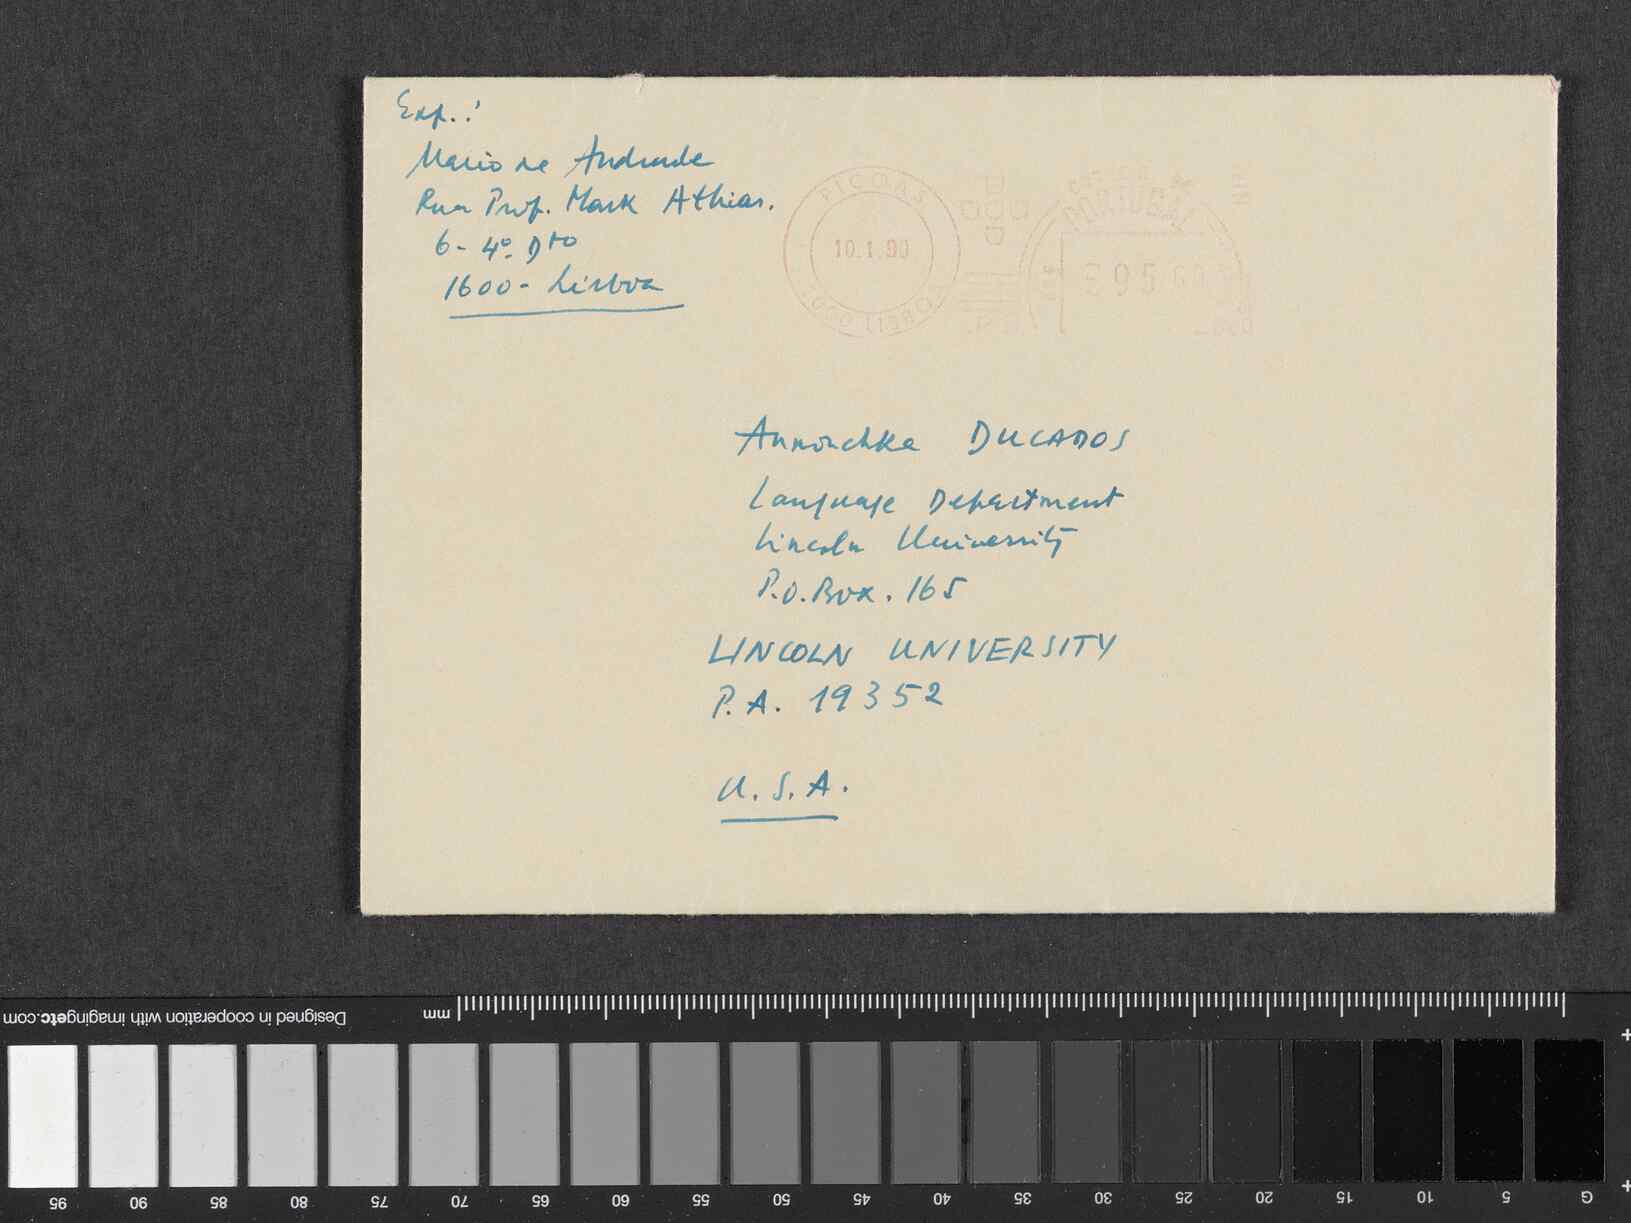 Exp.:
Mario de Andrade
Rua Prof. Mark Athias.
6 - 4º. Dto
1600 - Lisboa
PICOAS
10.1.90
1000 LISBOA
CORREIO DE
PORTUGAL
Annouchka DUCADOS
Language Department
Lincoln University
P.O. Box. 165
LINCOLN UNIVERSITY
P.A. 19352
U.S.A.
Designed in cooperation with imagingetc.com
mm
95 90 85 80 75 70 65 60 55 50 45 40 35 30 25 20 15 10 5 G